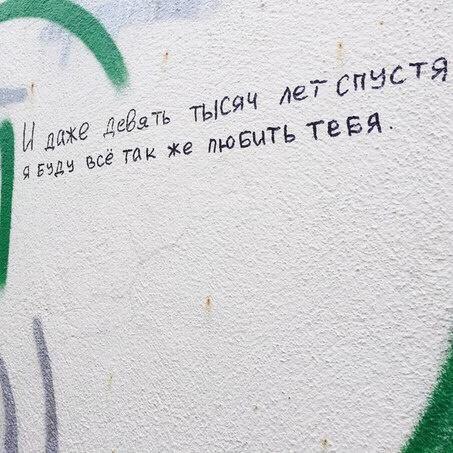 И даже девять тысяч лет спустя
я буду всё так же любить тебя.